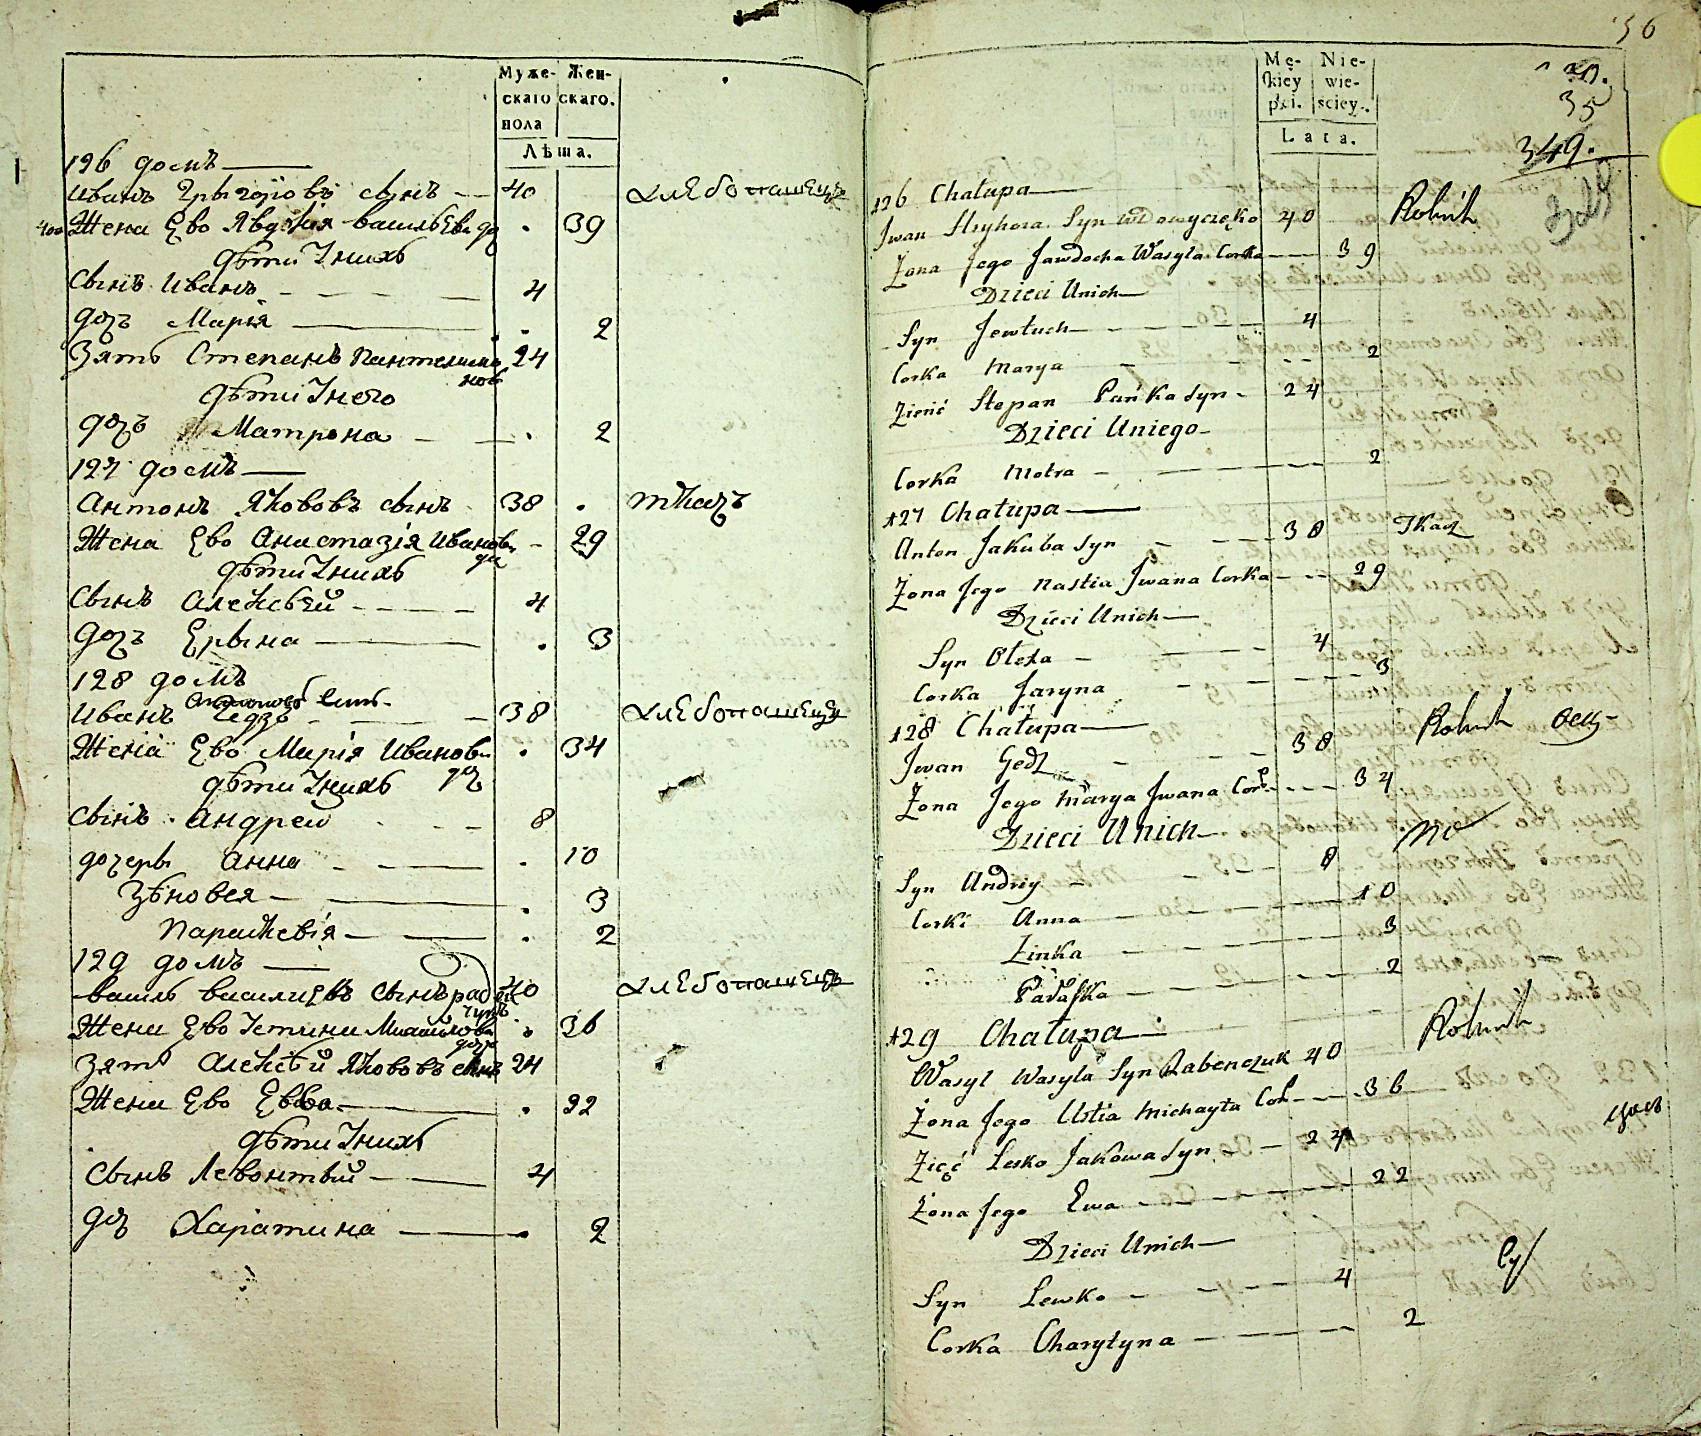 Муже-
скаго
пола
Жен-
скаго.
Лѣта.
126 домъ
Иванъ Грыгоріовъ сынъ 40 хлебопашецъ
Жена Ево Явдокія васильева дочь 39
дѣти Унихъ
Сынъ Иванъ 4
дочъ Марія 2
Зять Степанъ Пантелимо
новъ 24
дѣти Унего
дочъ Матрона 2
127 домъ
Антонъ Яковъ сынъ 38 ткачъ
Жена Ево Анастазія Иванова
дч 29
дѣти Унихъ
Сынъ Алексѣй 4
дочъ Ерына 3
128 домъ
Иванъ Гедзъ 38 хлебопашецъ
Жена Ево Марія Иванова
дч 34
дѣти Унихъ
Сынъ Андрей 8
дочеры Анна 10
Зѣновея 3
Параскевія 2
129 домъ
василь василиевъ сынъ 40 хлебопашецъ
Жена Ево Устина Михайлова
дочъ 36
Зять Алексѣй Яковъ сынъ 24
Жена Ево Евва 22
дѣти Унихъ
Сынъ Левонтый 4
дч Харатина 2
36
Mę-
skiey
płci.
Nie-
wie-
sciey.
Lata.
35
349.
126 Chałupa
Jwan Hryhora Syn 40 Rolnik
Żona Jego Jawdocha Wasyla Corka 39
Dzieci Unich
Syn Jewtuch 4
Corka Marya 2
Zienć Stepan Pańka Syn 24
Dzieci Uniego
Corka Motra 2
127 Chałupa
Anton Jakuba Syn 38 Tkacz
Żona Jego Nastia Jwana Corka 29
Dzieci Unich
Syn Olexa 4
Corka Jaryna 3
128 Chałupa
Jwan Gedz 38 Rolnik
Żona Jego Marya Jwana Cor 34
Dzieci Unich
Syn Andriy 8
Corki Anna 10
Zinka 3
Paraska 2
129 Chałupa
Wasyl Wasyla Syn Rabenczuk 40 Rolnik
Żona Jego Ustia Michayła Cor 36
Zięć Lesko Jakowa Syn 24
Żona Jego Ewa 22
Dzieci Unich
Syn Lewko 4
Corka Charytyna 2